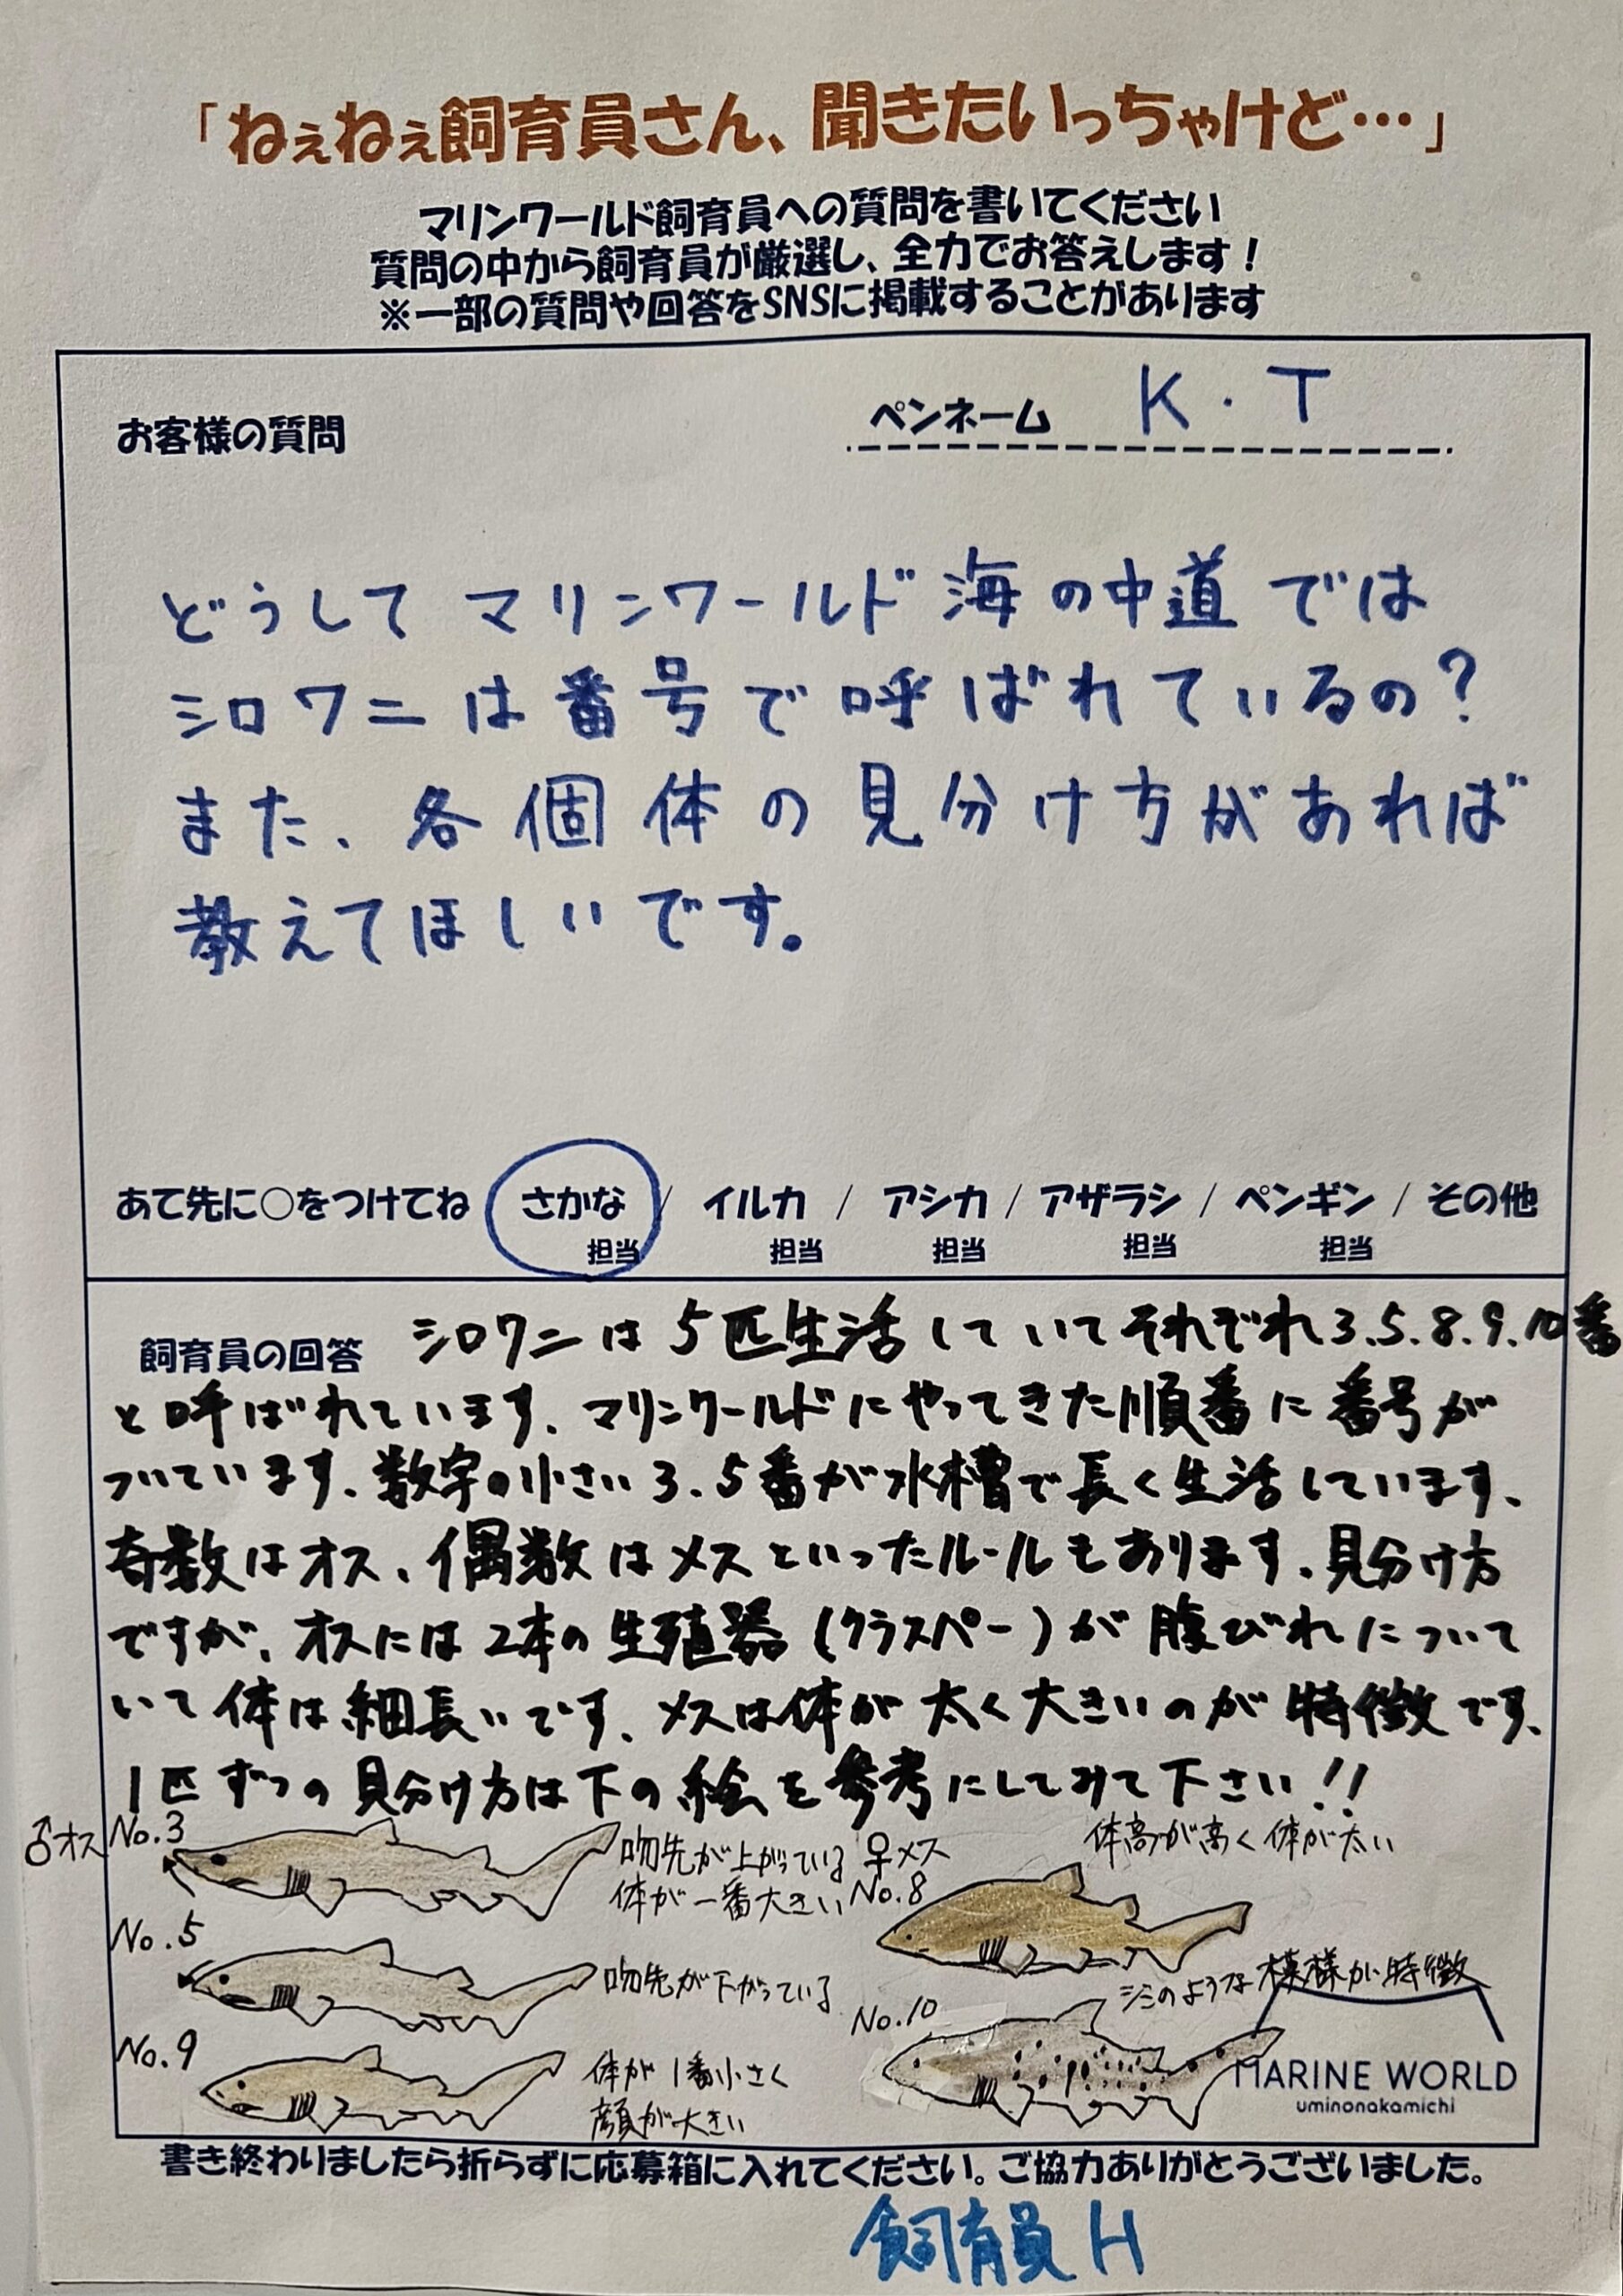 「ねぇねぇ飼育員さん、聞きたいっちゃけど…」
マリンワールド飼育員への質問を書いてください
質問の中から飼育員が厳選し、全力でお答えします！
※一部の質問や回答をSNSに掲載することがあります
お客様の質問
ペンネーム K・T
どうしてマリンワールド海の中道では
シロワニは番号で呼ばれているの？
また、各個体の見分け方があれば
教えてほしいです。
あて先に○をつけてね さかな担当 / イルカ担当 / アシカ担当 / アザラシ担当 / ペンギン担当 / その他
飼育員の回答 シロワニは5匹生活していてそれぞれ3.5.8.9.10番
と呼ばれています、マリンワールドにやってきた順番に番号が
ついています、数字の小さい3.5番が水槽で長く生活しています、
奇数はオス、偶数はメスといったルールもあります、見分け方
ですが、オスには2本の生殖器（クラスペー）が腹びれについて
いて体は細長いです、メスは体が太く大きいのが特徴です、
1匹ずつの見分け方は下の絵を参考にしてみて下さい!!
♂オス No.3
吻先が上がっている
体が一番大きい
No.5
吻先が下がっている
No.9
体が1番小さく
顔が大きい
♀メス
No.8
体高が高く体が太い
No.10
シミのような模様が特徴
MARINE WORLD
uminonakamichi
書き終わりましたら折らずに応募箱に入れてください。ご協力ありがとうございました。
飼育員 H